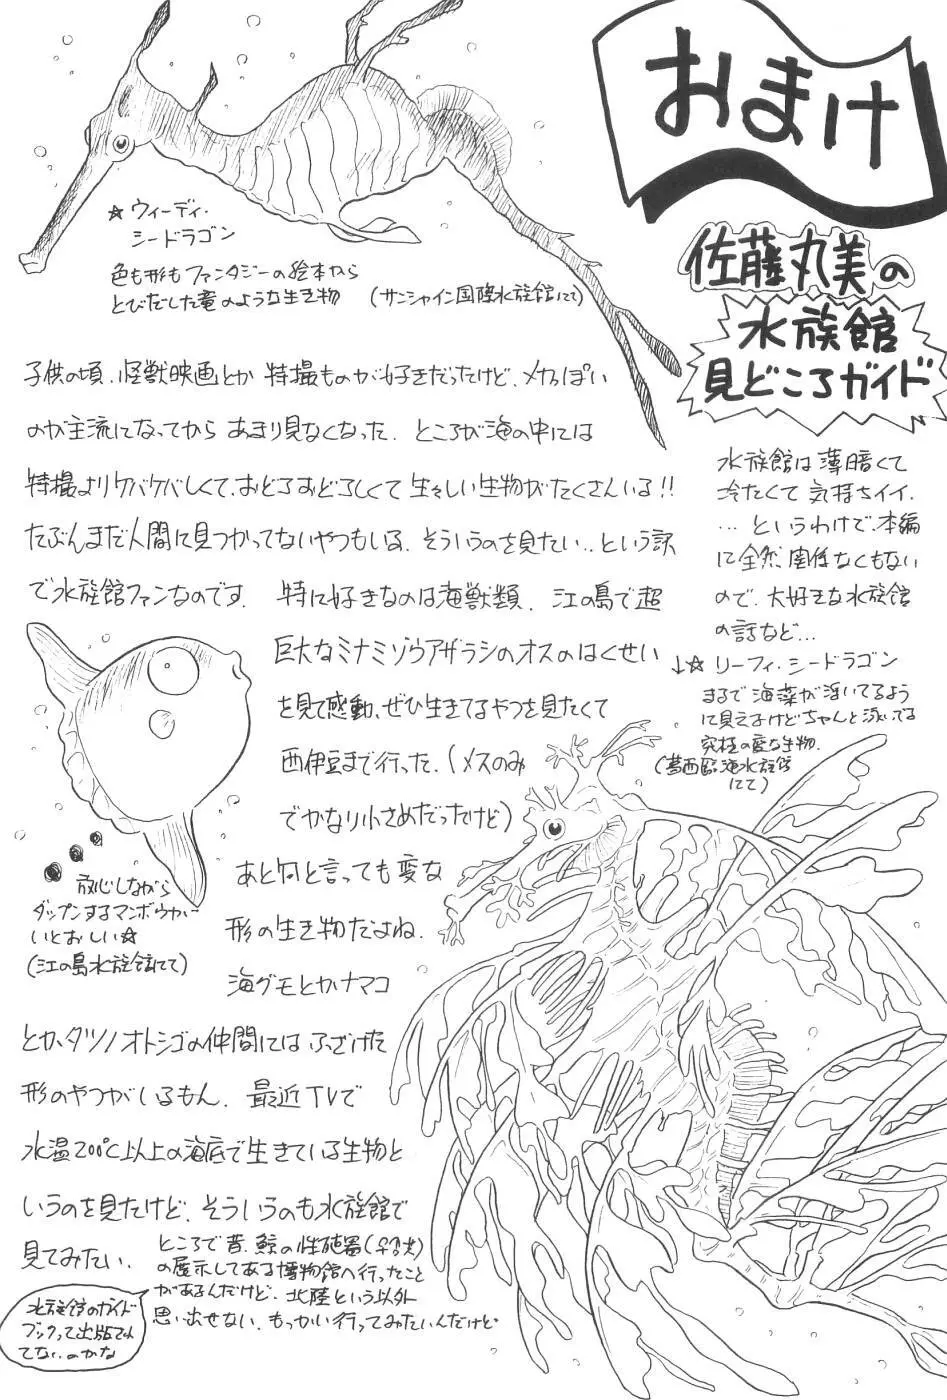 おまけ
佐藤丸美の
水族館
見どころガイド
水族館は薄暗くて
冷たくて気持ちイイ.
…というわけで、本編
に全然関係なくもない
ので、大好きな水族館
の話など…
↓☆リーフィ・シードラゴン
まるで海藻が浮いてるよう
に見えるけどちゃんと泳いでる
究極の変な生物.
(葛西臨海水族館
にて)
☆ウィーディ・
シードラゴン
色も形もファンタジーの絵本から
とびだした竜のような生き物
(サンシャイン国際水族館にて)
子供の頃、怪獣映画とか特撮ものが好きだったけど、メカっぽい
のが主流になってからあまり見なくなった. ところが海の中には
特撮よりケバケバしくて、おどろおどろしくて生々しい生物がたくさんいる!!
たぶんまだ人間に見つかってないやつもいる. そういうのを見たい..という訳
で水族館ファンなのです. 特に好きなのは海獣類. 江の島で超
巨大なミナミゾウアザラシのオスのはくせい
を見て感動、ぜひ生きてるやつを見たくて
西伊豆まで行った.(メスのみ
でかなり小さめだったけど)
あと何と言っても変な
形の生き物だよね.
海グモとかナマコ
とか、タツノオトシゴの仲間にはふざけた
形のやつがいるもん. 最近TVで
水温200℃以上の海底で生きている生物と
いうのを見たけど、そういうのも水族館で
見てみたい.
放心しながら
ダップンするマンボウが
いとおしい☆
(江の島水族館にて)
ところで昔、鯨の性殖器(♀♂共)
の展示してある博物館へ行ったこと
があるんだけど、北陸という以外
思い出せない. もっかい行ってみたいんだけど・
水族館のガイド
ブックって出版されて
てないのかな